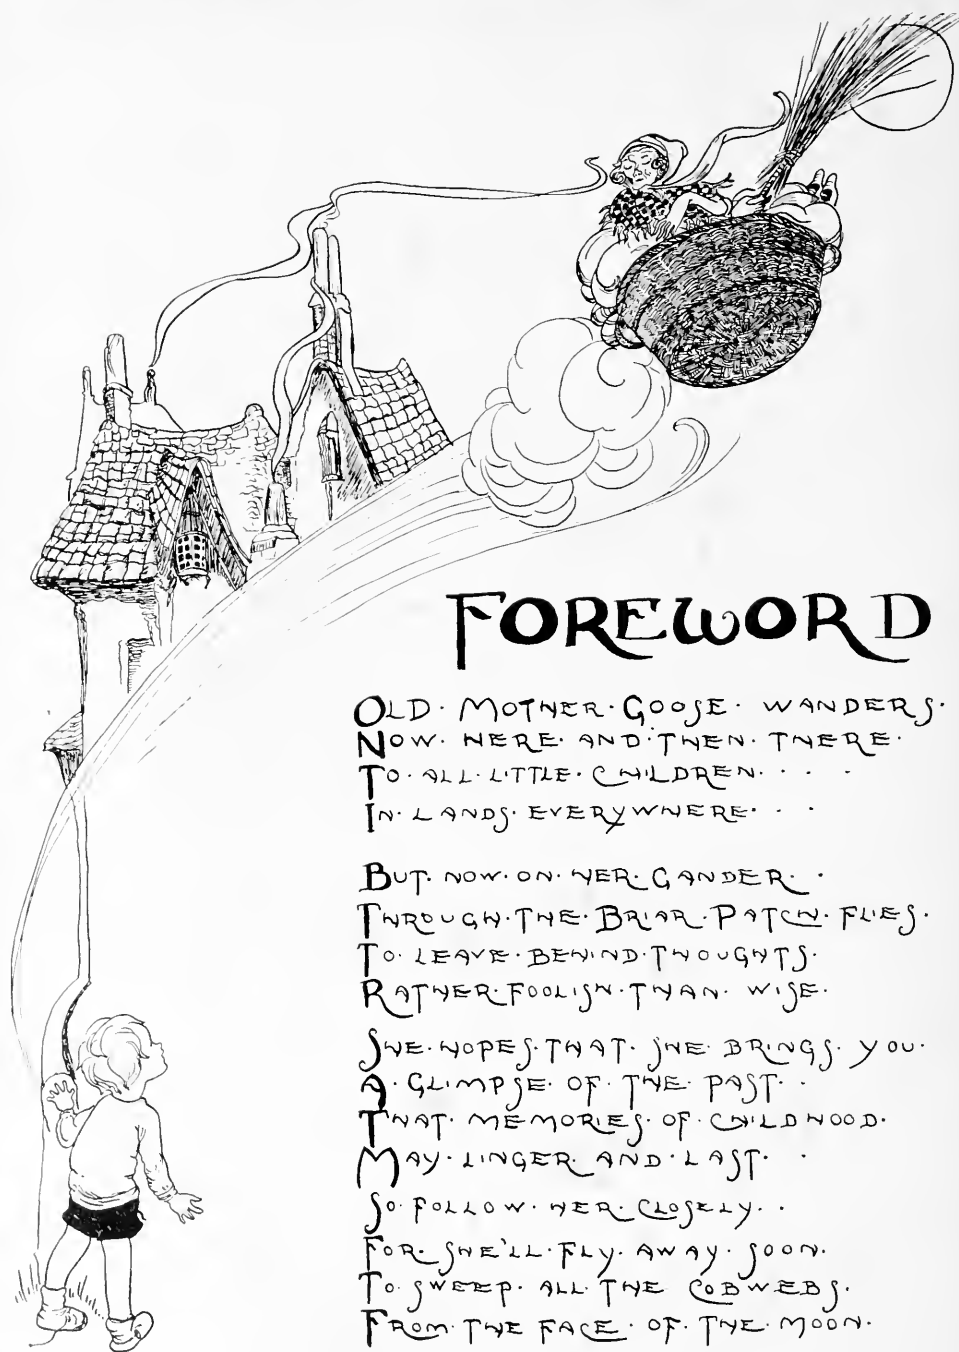 FOREWORD
OLD · MOTHER · GOOSE · WANDERS ·
NOW · HERE · AND · THEN · THERE ·
TO · ALL · LITTLE · CHILDREN · · · ·
IN · LANDS · EVERYWHERE · · ·
BUT · NOW · ON · HER · GANDER · ·
THROUGH · THE · BRIAR · PATCH · FLIES ·
TO · LEAVE · BEHIND · THOUGHTS ·
RATHER · FOOLISH · THAN · WISE ·
SHE · HOPES · THAT · SHE · BRINGS · YOU ·
A · GLIMPSE · OF · THE · PAST · ·
THAT · MEMORIES · OF · CHILDHOOD ·
MAY · LINGER · AND · LAST · ·
SO · FOLLOW · HER · CLOSELY · ·
FOR · SHE'LL · FLY · AWAY · SOON ·
TO · SWEEP · ALL · THE COBWEBS ·
FROM · THE FACE · OF · THE · MOON ·